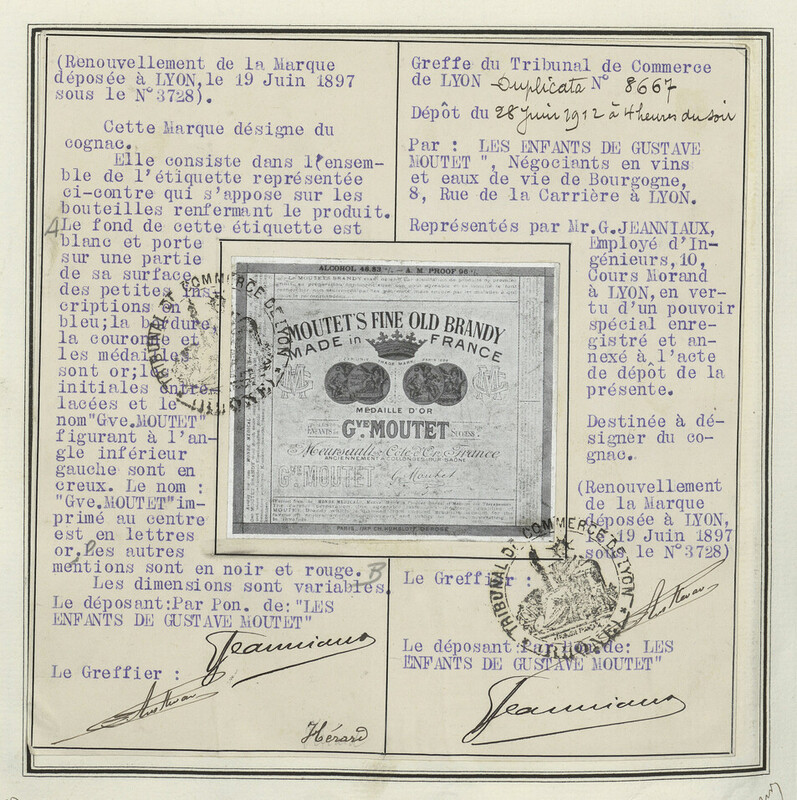 (Renouvellement de la Marque
déposée à LYON, le 19 Juin 1897
sous le N°3728).
Cette Marque désigne du
cognac.
Elle consiste dans l'ensem-
ble de l'étiquette représentée
ci-contre qui s'appose sur les
bouteilles renfermant le produit.
A Le fond de cette étiquette est
blanc et porte
sur une partie
de sa surface
des petites ins-
criptions en
bleu; la bordure,
la couronne et
les médailles
sont or; les
initiales entre-
lacées et le
nom "Gve.MOUTET"
figurant à l'an-
gle inférieur
gauche sont en
creux. Le nom :
"Gve.MOUTET" im-
primé au centre
est en lettres
or, les autres
mentions sont en noir et rouge. B
Les dimensions sont variables.
Le déposant:Par Pon. de:"LES
ENFANTS DE GUSTAVE MOUTET"
Jeanniaux
Le Greffier :
Hérard
Greffe du Tribunal de Commerce
de LYON Duplicata N° 8667
Dépôt du 28 Juin 1912 à 4 heures du soir
Par : LES ENFANTS DE GUSTAVE
MOUTET ", Négociants en vins
et eaux de vie de Bourgogne,
8, Rue de la Carrière à LYON.
Représentés par Mr.G.JEANNIAUX,
Employé d'In-
génieurs, 10,
Cours Morand
à LYON, en ver-
tu d'un pouvoir
spécial enre-
gistré et an-
nexé à l'acte
de dépôt de la
présente.
Destinée à dé-
signer du co-
gnac.
(Renouvellement
de la Marque
déposée à LYON,
le 19 Juin 1897
sous le N°3728)
Le Greffier :
Le déposant:Par Pon de: LES
ENFANTS DE GUSTAVE MOUTET"
Jeanniaux
ALCOHOL 46.83 %. — A. M. PROOF 96 %.
MOUTET'S FINE OLD BRANDY
MADE in FRANCE
TRADE MARK
MÉDAILLE D'OR
ENFANTS DE GVE MOUTET SUCCESRS
Meursault - Côte d'Or, France
ANCIENNEMENT A COLLONGES-SUR-SAÔNE
GVE MOUTET
G. Moutet
TRIBUNAL DE COMMERCE DE LYON
(RHONE)
TRIBUNAL DE COMMERCE DE LYON
(RHONE)